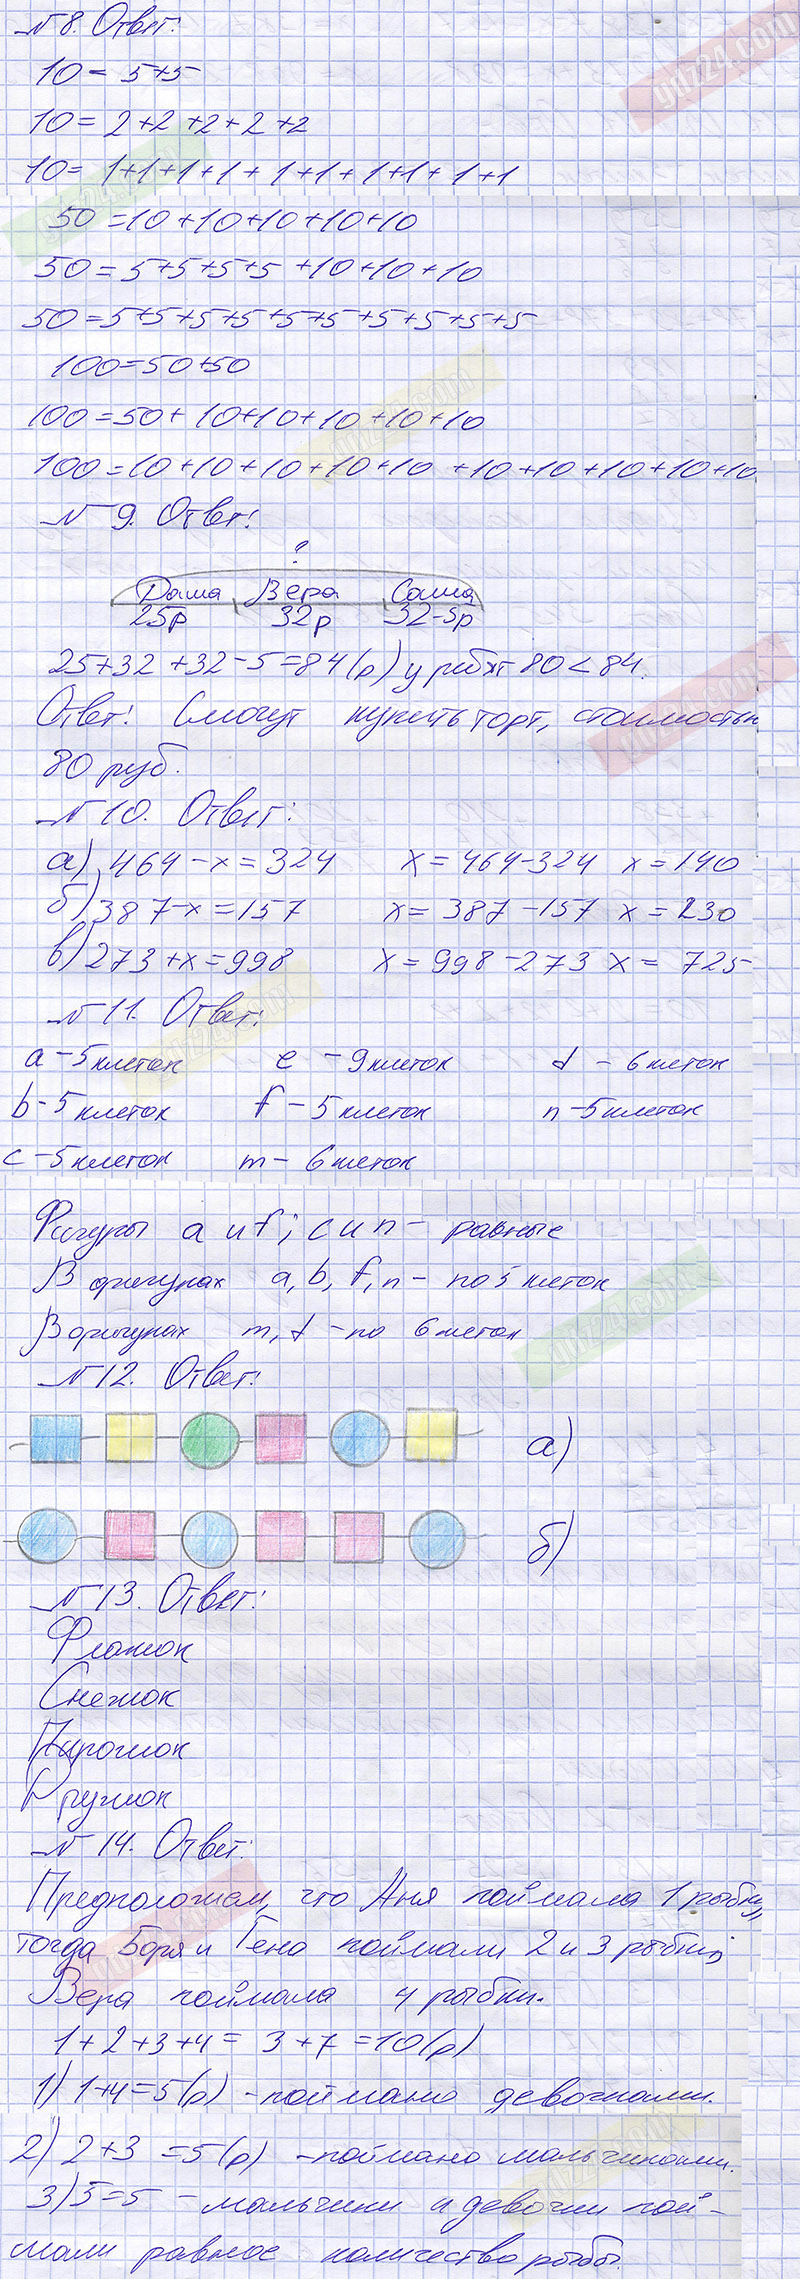 №8. Ответ:
10 = 5+5
10 = 2+2+2+2+2
10 = 1+1+1+1+1+1+1+1+1+1
50 = 10+10+10+10+10
50 = 5+5+5+5+10+10+10
50 = 5+5+5+5+5+5+5+5+5+5
100 = 50+50
100 = 50+10+10+10+10+10
100 = 10+10+10+10+10+10+10+10+10+10
№9. Ответ:
?
Даша Вера Саша
25р 32р 32-5р
25+32+32-5=84(р) у ребят 80<84.
Ответ: Смогут купить торт, стоимостью
80 руб.
№10. Ответ:
а) 464-х=324 х=464-324 х=140
б) 387-х=157 х=387-157 х=230
в) 273+х=998 х=998-273 х=725
№11. Ответ:
a - 5 клеток e - 9 клеток d - 6 клеток
b - 5 клеток f - 5 клеток n - 5 клеток
c - 5 клеток m - 6 клеток
Фигуры a и f; c и n - равные
В фигурах a, b, f, n - по 5 клеток
В фигурах m, d - по 6 клеток
№12. Ответ:
а)
б)
№13. Ответ:
Флажок
Снежок
Пирожок
Кружок
№14. Ответ:
Предположем, что Аня поймала 1 рыбку,
тогда Боря и Гена поймали 2 и 3 рыбки,
Вера поймала 4 рыбки.
1+2+3+4 = 3+7 = 10(р)
1) 1+4=5(р) - поймано девочками.
2) 2+3 = 5(р) - поймано мальчиками.
3) 5=5 - мальчики и девочки пой-
мали равное количество рыбы.
gdz24.com
gdz24.com
gdz24.com
gdz24.com
gdz24.com
gdz24.com
gdz24.com
gdz24.com